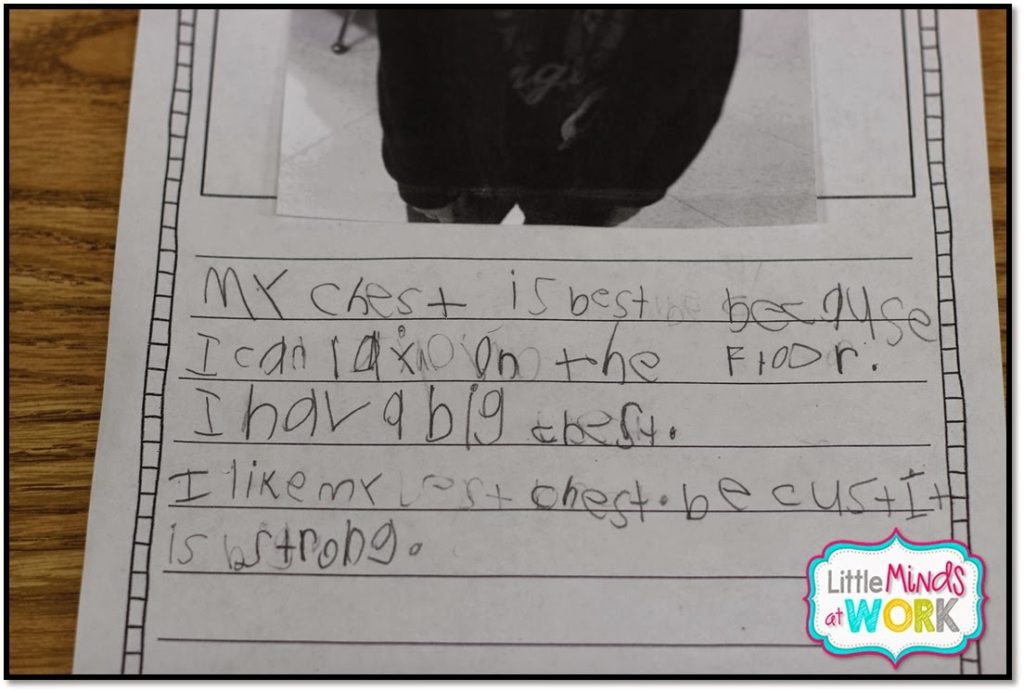 My chest is best becquse
I can lax on the Floor.
I hav a big chest.
I like my chest. be custIt
is strong.
Little Minds
at WORK